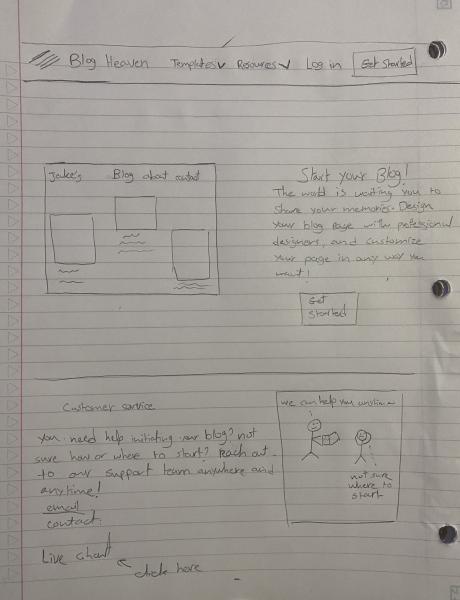 Blog Heaven Templates Resources Log in Get Started
Jake's Blog about contact
Start your Blog!
The world is waiting you to
share your memories. Design
your blog page with professional
designers, and customize
your page in any way you
want!
Get
Started
Customer service
you need help initiating your blog? not
sure how or where to start? Reach out
to our support team anywhere and
anytime!
email
contact
Live chat
click here
we can help you anytime
not sure
where to
start